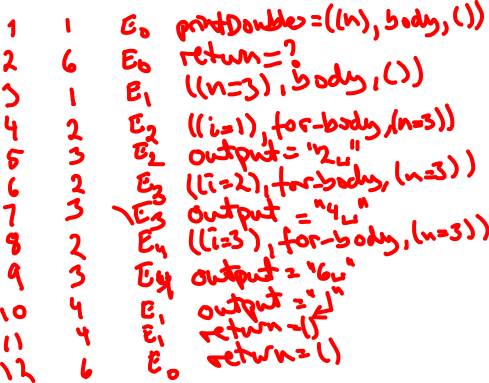 1 1 E₀ printDoubles=((n), body, ())
2 6 E₀ return=?
3 1 E₁ ((n=3), body, ())
4 2 E₂ ((i=1), for-body, (n=3))
5 3 E₂ output="2␣"
6 2 E₃ ((i=2), for-body, (n=3))
7 3 E₃ output="4␣"
8 2 E₄ ((i=3), for-body, (n=3))
9 3 E₄ output="6␣"
10 4 E₁ output="↲"
11 4 E₁ return=()
12 6 E₀ return=()